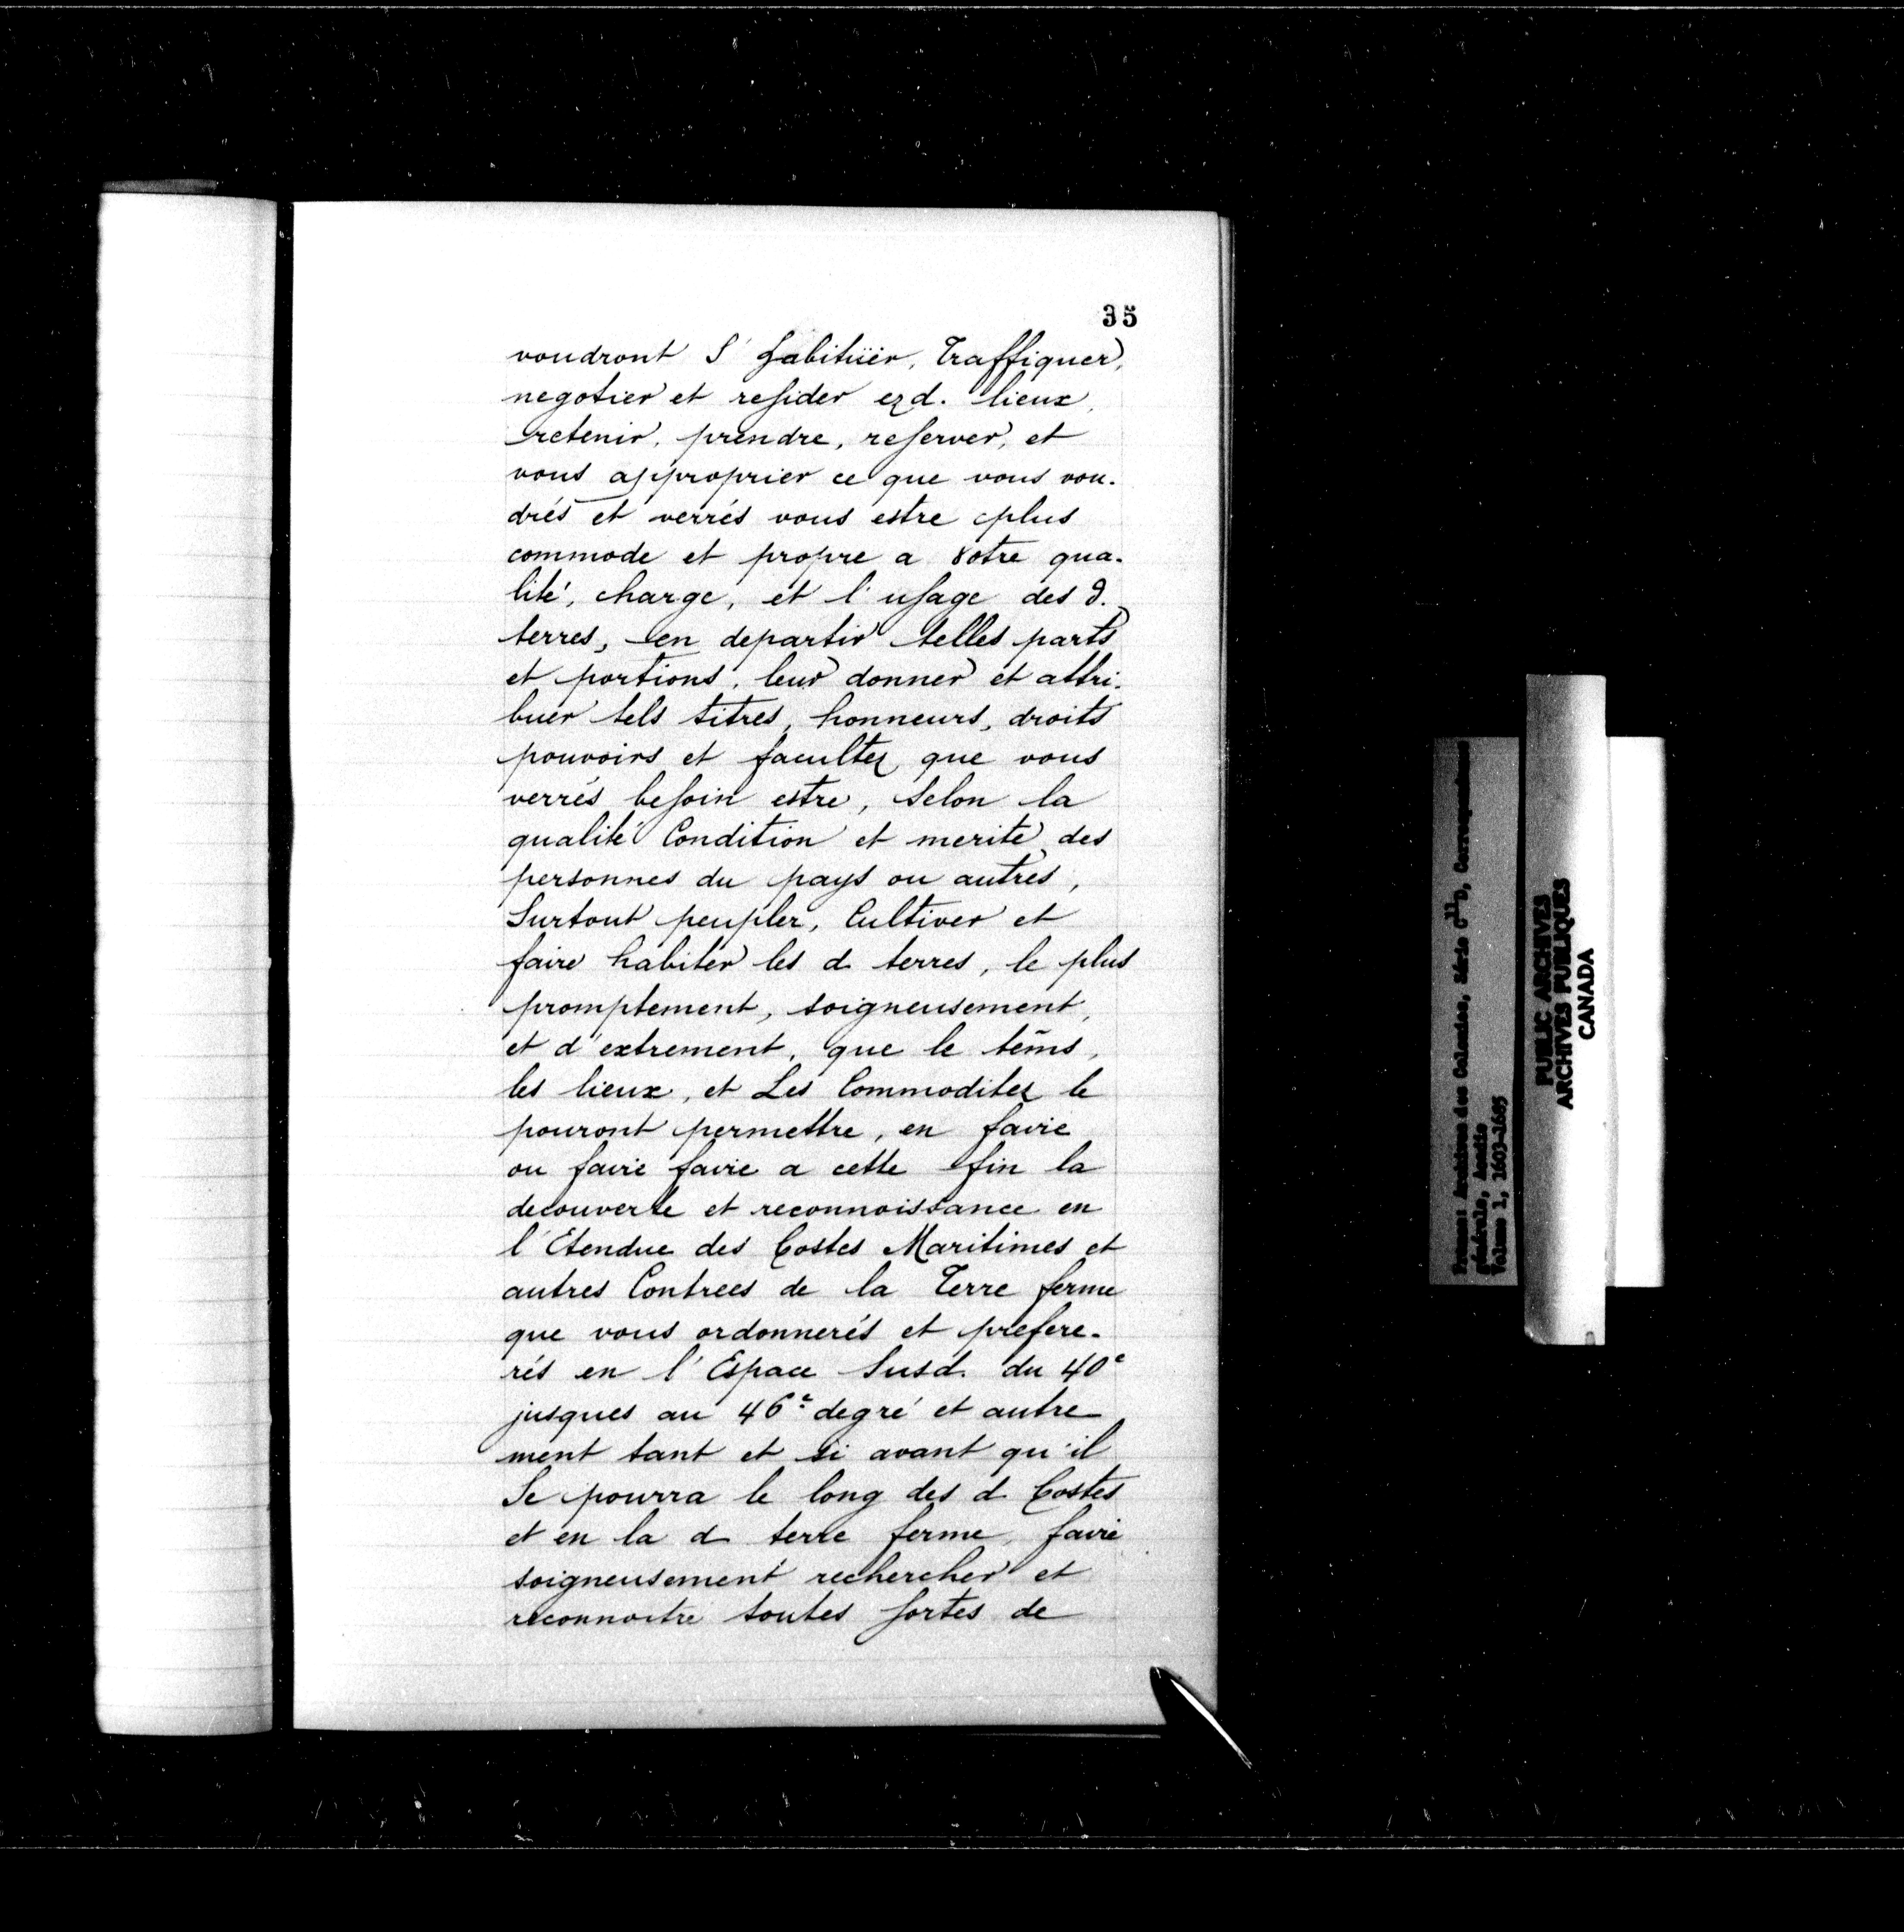 35
voudront S'habitüer, Traffiquer,
negotier et resider ezd. lieux,
retenir, prendre, reserver, et
vous approprier ce que vous vou-
drés et verrés vous estre plus
commode et propre a votre qua-
lité, charge, et l'usage des d.
terres, en departir telles parts
et portions, leur donner et attri-
buer tels titres, honneurs, droits
pouvoirs et facultez que vous
verrés besoin estre, Selon la
qualité Condition et merite des
personnes du pays ou autres,
Surtout peupler, Cultiver et
faire habiter les d terres, le plus
promptement, soigneusement,
et d'extrement, que le tem̃s,
les lieux, et Les Commoditez le
pouront permettre, en faire
ou faire faire a cette fin la
decouverte et reconnoissance en
l'Etendue des Costes Maritimes et
autres Contrees de la Terre ferme
que vous ordonnerés et prefere-
rés en l'Espace Susd. du 40e
jusques au 46e degré et autre-
ment tant et si avant qu'il
Se pourra le long des d Costes
et en la d terre ferme, faire
soigneusement rechercher et
reconnoitre toutes sortes de
PUBLIC ARCHIVES
ARCHIVES PUBLIQUES
CANADA
France: Archives des Colonies, Série C11D, Correspondance
générale, Acadie
Volume 1, 1603-1685